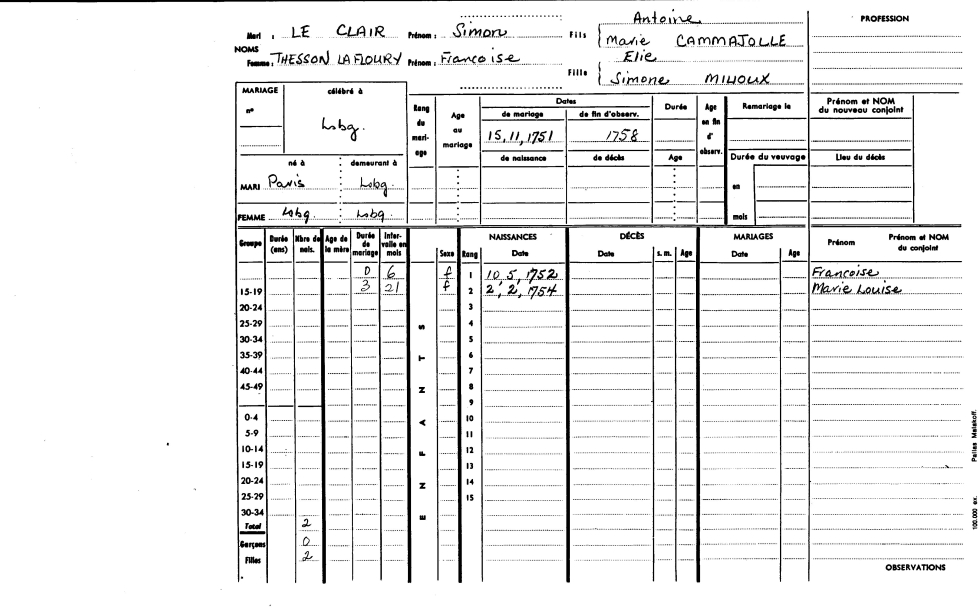 Antoine
PROFESSION
Mari : LE CLAIR Prénom : Simon Fils Marie CAMMAJOLLE
NOMS
Femme : THESSON LAFLOURY Prénom : Francoise Fille Elie
Simone MILIOUX
MARIAGE célébré à
n° Lsbg.
Rang du mari-age
Age au mariage
Dates
de mariage de fin d'observ.
15, 11, 1751 1758
de naissance de décès
Durée
Age
Age en fin d'observ.
Remariage le
Prénom et NOM du nouveau conjoint
Durée du veuvage
Lieu du décès
en
mois
né à demeurant à
MARI Paris Lsbg.
FEMME Lsbg. Lsbg.
Groupe Durée (ans) Nbre de nais. Age de la mère Durée de mariage Inter-valle en mois
ENFANTS
Sexe Rang NAISSANCES Date DÉCÈS Date s. m. Age MARIAGES Date Age Prénom Prénom et NOM du conjoint
0 6 f 1 10, 5, 1752 Francoise
15-19 3 21 f 2 2, 2, 1754 Marie Louise
20-24 3
25-29 4
30-34 5
35-39 6
40-44 7
45-49 8
9
0-4 10
5-9 11
10-14 12
15-19 13
20-24 14
25-29 15
30-34
Total 2
Garçons 0
Filles 2
OBSERVATIONS
100.000 ex. Pallas Malakoff.